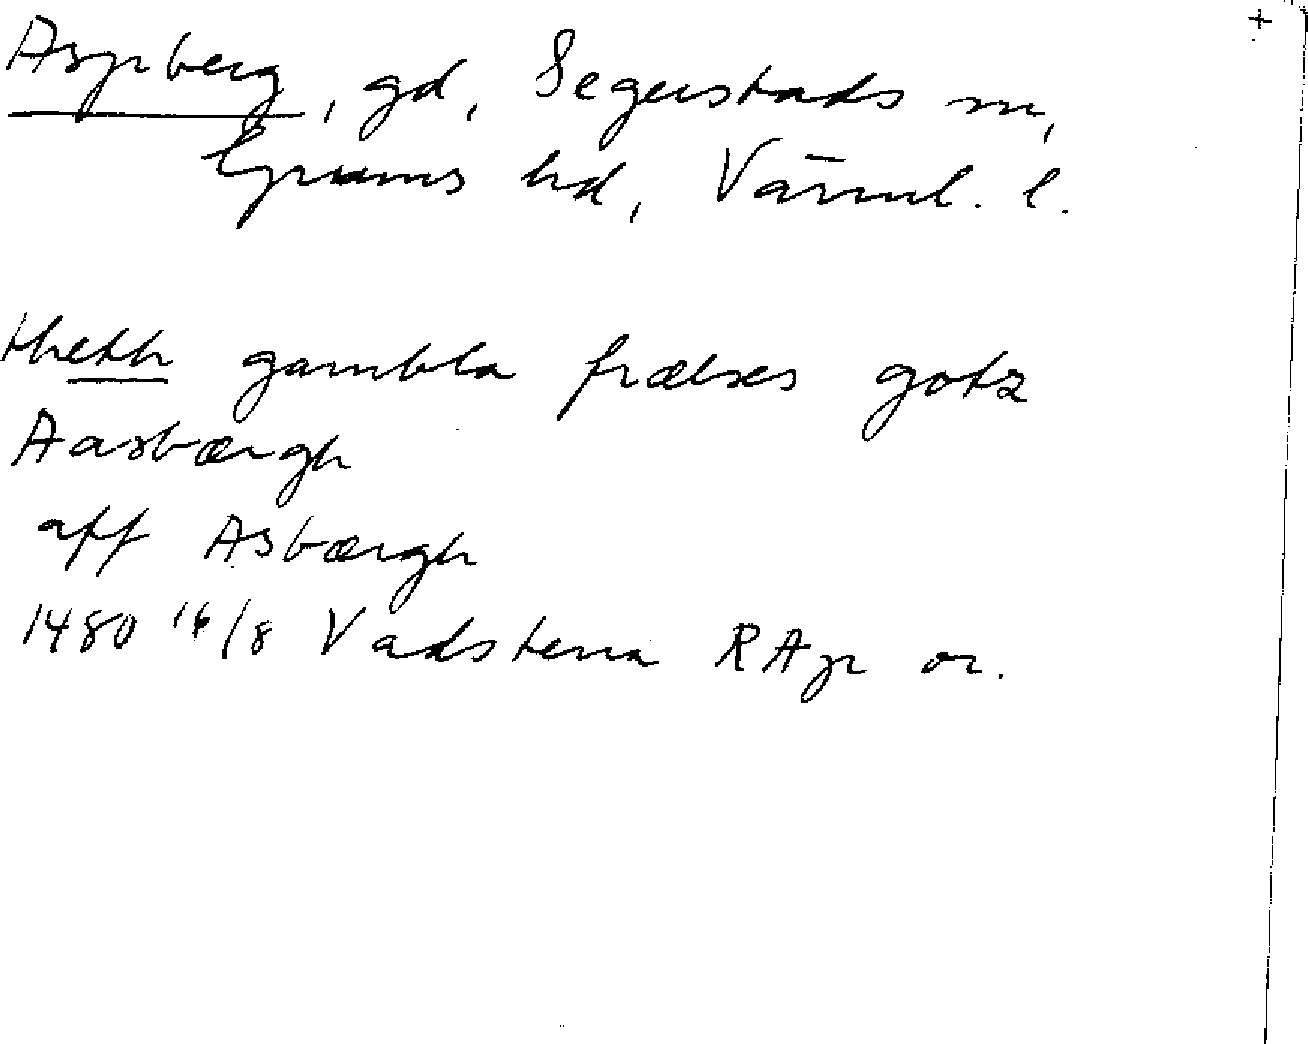 +
Aspberg, gd, Segerstads sn,
Grums hd, Värml. l.
thetth gambla frælses gotz
Aasbærgh
aff Asbærgh
1480 16/8 Vadstena RAp or.